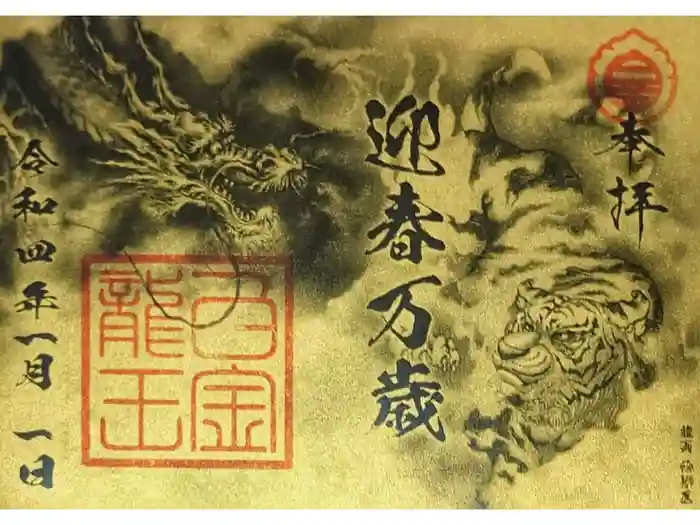 奉拝
迎春万歳
令和四年一月一日
龍王